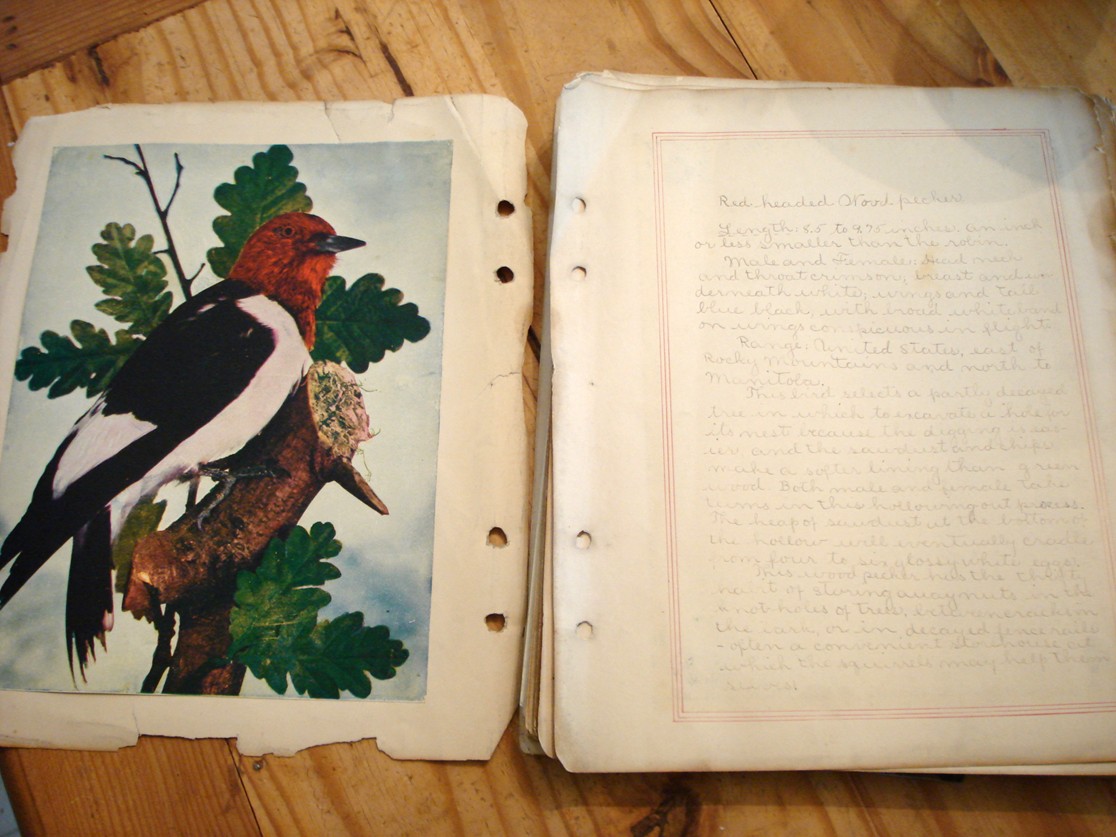 Red-headed Wood pecker
Length: 8.5 to 9.75 inches: an inch
or less smaller than the robin.
Male and Female: Head neck
and throat crimson; breast and un-
derneath white; wings and tail
blue black, with broad white band
on wings conspicuous in flight.
Range: United States, east of
Rocky Mountains and north to
Manitoba.
This bird selects a partly decayed
tree in which to excavate a hole for
its nest because the digging is eas-
ier, and the sawdust and chips
make a softer lining than green
wood. Both male and female take
turns in this hollowing out process.
The heap of sawdust at the bottom of
the hollow will eventually cradle
from four to six glossy white eggs.
This wood pecker has the thrift
of storing away nuts in the
knot-holes of trees, between cracks in
the bark, or in decayed fence rails
- often a convenient storehouse at
which the squirrels may help them
selves!